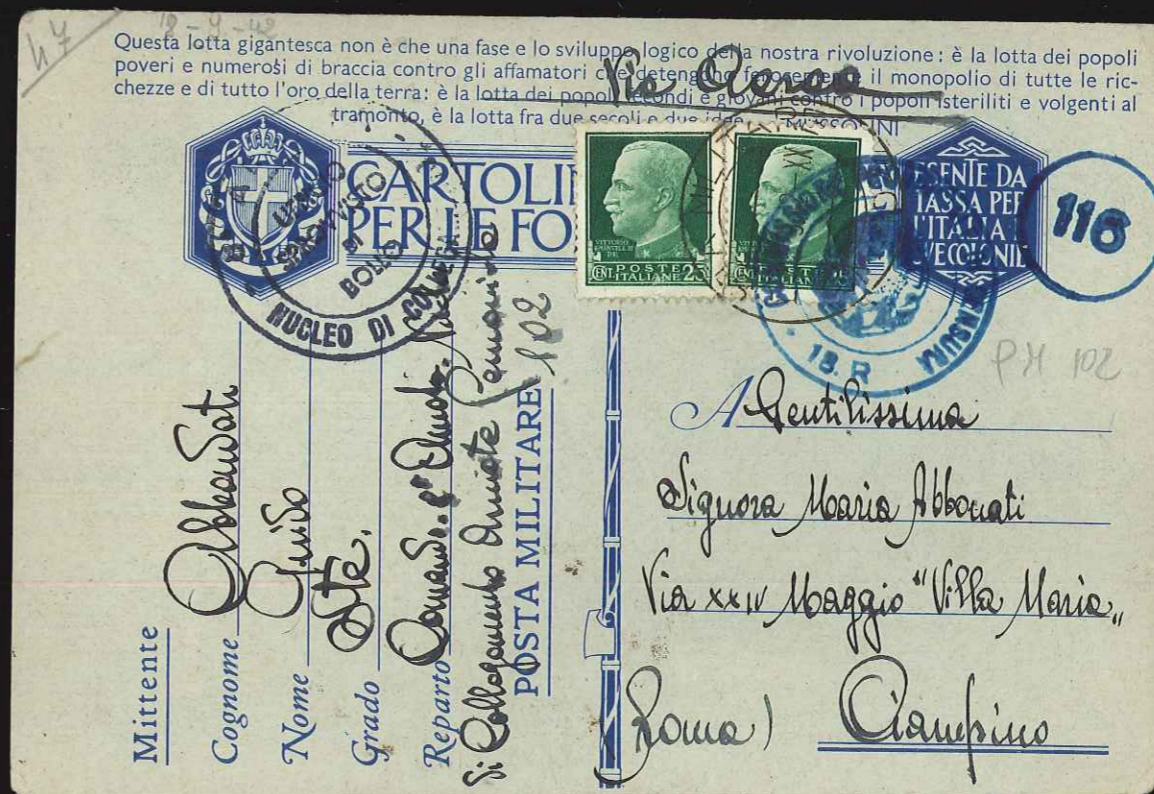 47
18-7-42
Questa lotta gigantesca non è che una fase e lo sviluppo logico della nostra rivoluzione: è la lotta dei popoli
poveri e numerosi di braccia contro gli affamatori che detengono ferocemente il monopolio di tutte le ric-
chezze e di tutto l'oro della terra: è la lotta dei popoli fecondi e giovani contro i popoli isteriliti e volgenti al
tramonto, è la lotta fra due secoli e due idee. MUSSOLINI
Via Aerea
CARTOLI
PER LE FO
ESENTE DA
TASSA PER
L'ITALIA E
SVE COLONIE
116
UFFICIO
SPROVVISTO
DI
BOLLO
NUCLEO DI
POSTE ITALIANE
CENT. 25
POSTE
ITALIANE
18. R
PM 102
Mittente
Cognome Abbondati
Nome Guido
Grado
Reparto Comando 8ª Armata. Nucleo
di Collegamento Armate
POSTA MILITARE 102
A Gentilissima
Signora Maria Abbonati
Via XXIV Maggio "Villa Maria„
(Roma) Ciampino